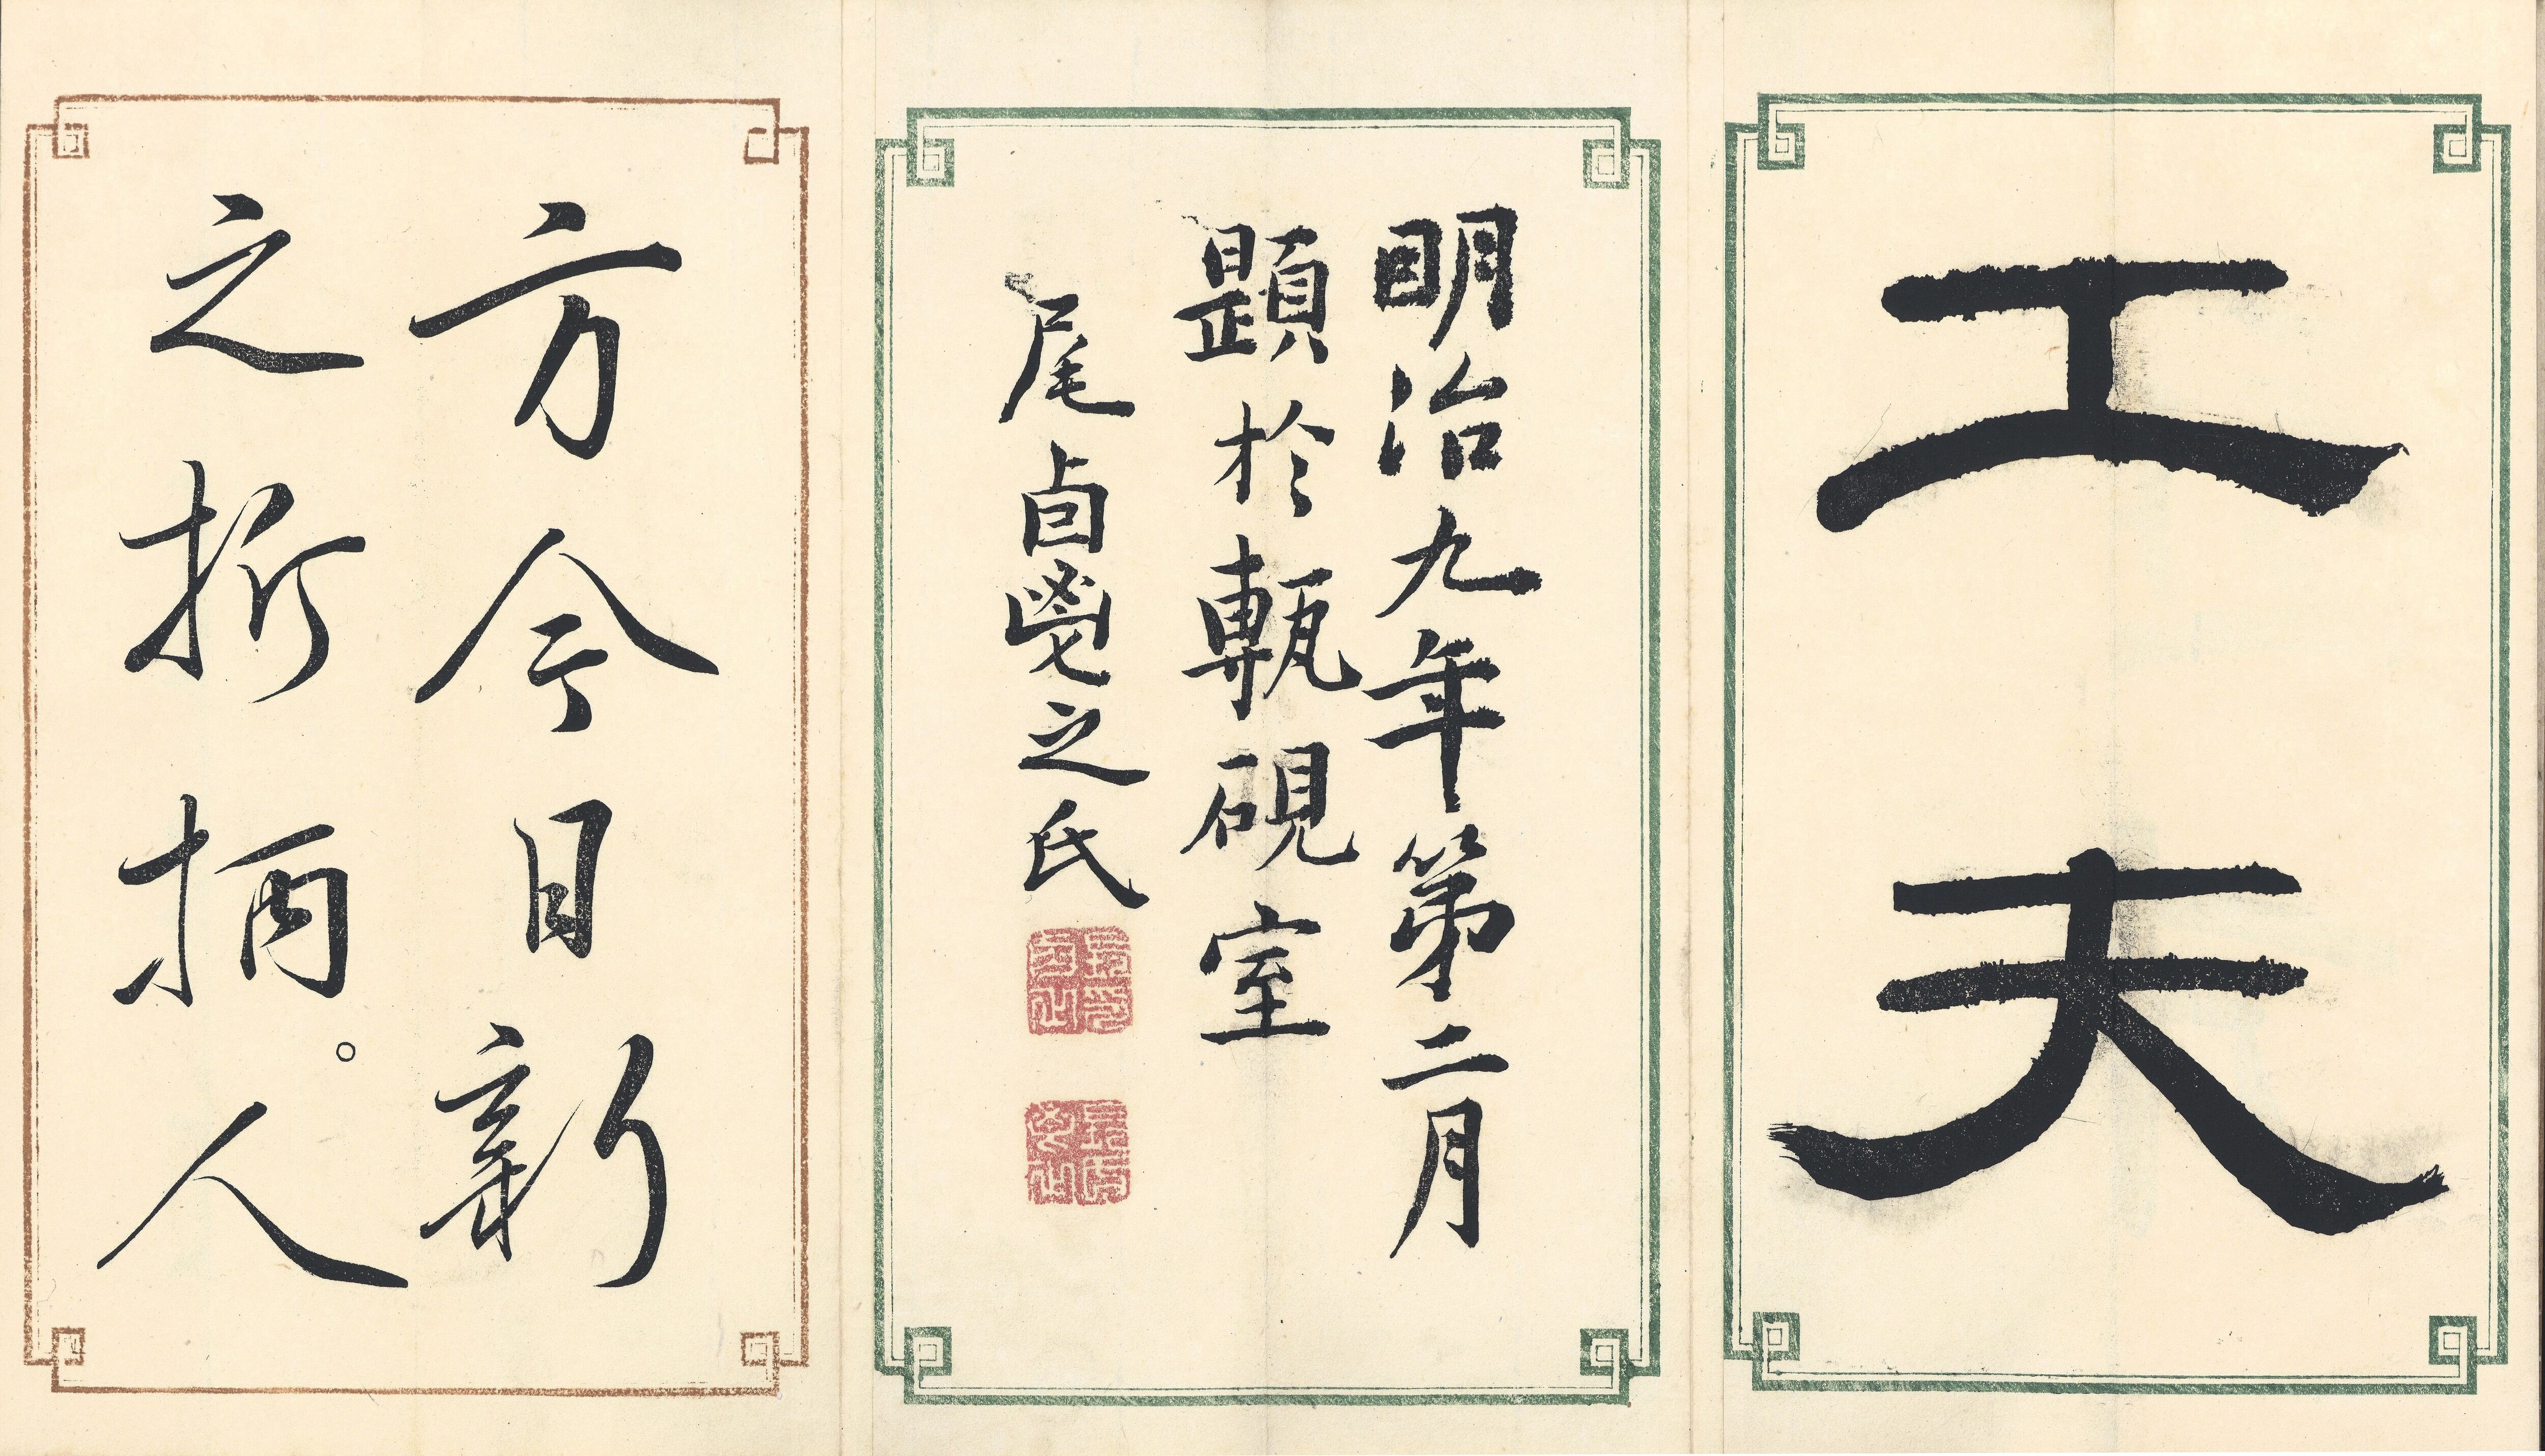 工夫
明治九年第二月
題於甎硯室
尾卣鬯之氏
方今日新
之折抦。人